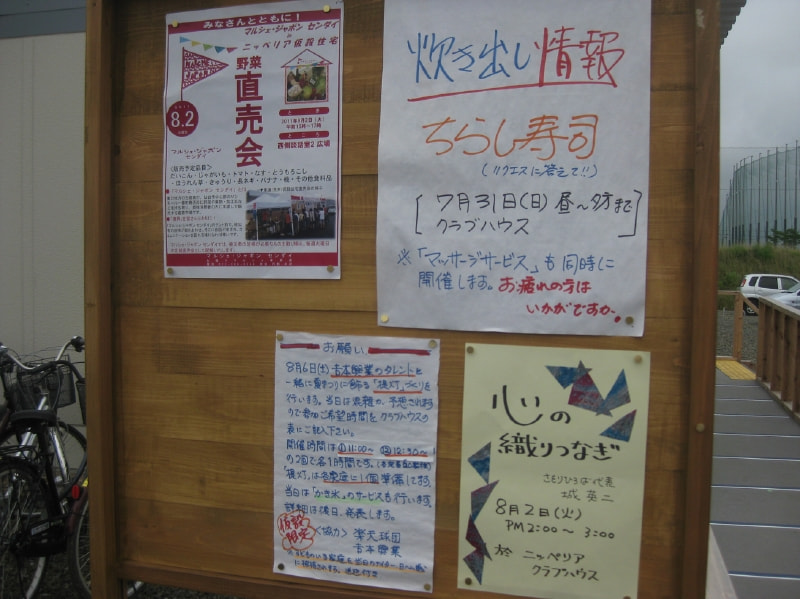 みなさんとともに！
マルシェ・ジャポン センダイ
in
ニッペリア仮設住宅
野菜
直売会
8.2
マルシェ・ジャポン
センダイ
とき
2011年8月2日（火）
ところ
西側談話室2 広場
だいこん・じゃがいも・トマト・なす・とうもろこし
・ほうれん草・きゅうり・長ネギ・バナナ・桃・その他食料品
マルシェ・ジャポン センダイ
炊き出し情報
ちらし寿司
(リクエストに答えて!!)
7月31日(日) 昼〜夕方まで
クラブハウス
※「マッサージサービス」も同時に
開催します。お疲れの方は
いかがですか。
お願い
8月6日(土)吉本興業のタレントと
一緒に夏まつりに飾る「提灯」づくりを
行います。当日は混雑が予想されます
ので参加ご希望時間をクラブハウスの
表にご記入下さい。
開催時間は①11:00〜 ②12:30〜
の2回で各1時間です。
「提灯」は各家庭に1個準備してます。
当日は「かき氷」のサービスも行います。
詳細は後日、発表します。
仮設
限定
〈協力〉 楽天球団
吉本興業
心の
織りつなぎ
さをりひろば代表
城 英二
8月2日(火)
PM 2:00〜3:00
於 ニッペリア
クラブハウス